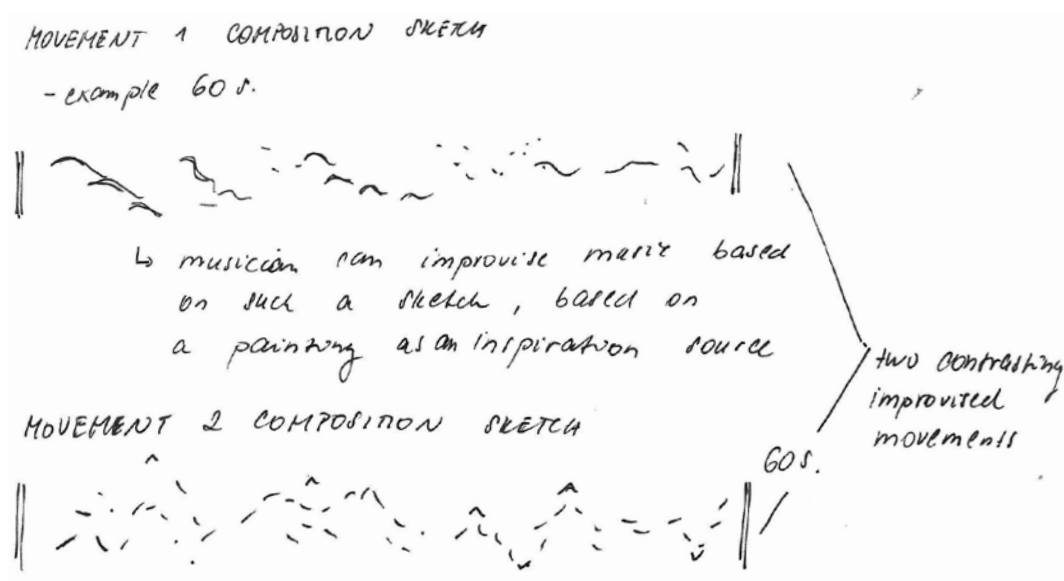 MOVEMENT 1 COMPOSITION SKETCH
- example 60 s.
↳ musician can improvise music based
on such a sketch, based on
a painting as an inspiration source
two contrasting
improvised
movements
MOVEMENT 2 COMPOSITION SKETCH
60 s.